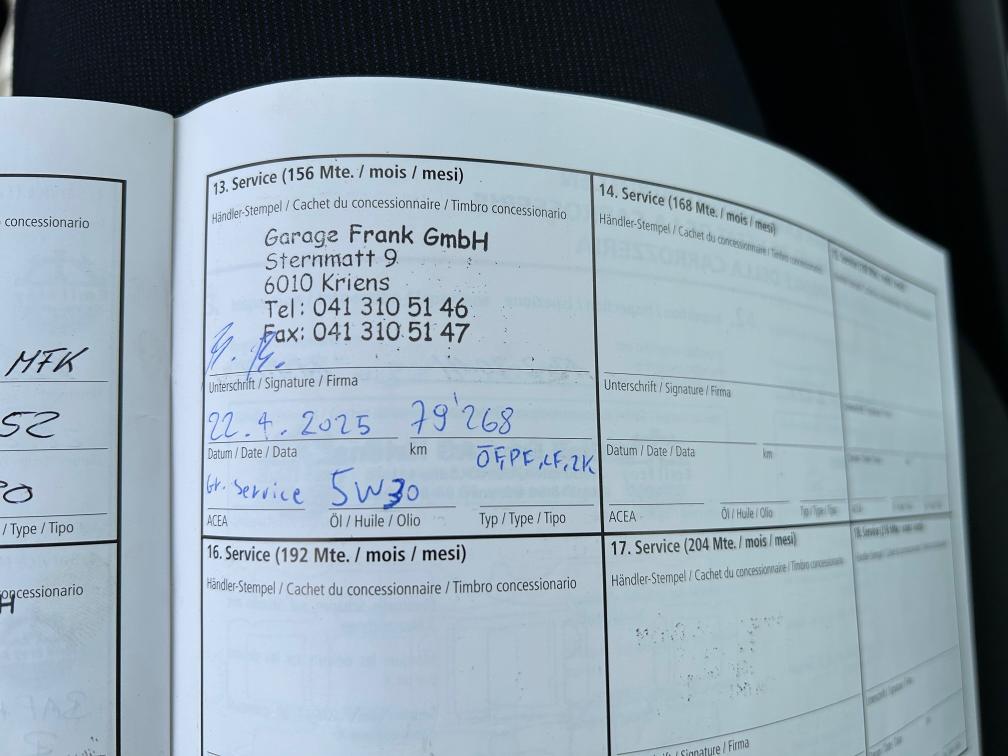 concessionario
MFK
52
/ Type / Tipo
concessionario
H
13. Service (156 Mte. / mois / mesi)
Händler-Stempel / Cachet du concessionnaire / Timbro concessionario
Garage Frank GmbH
Sternmatt 9
6010 Kriens
Tel: 041 310 51 46
Fax: 041 310 51 47
Unterschrift / Signature / Firma
22.4.2025 79'268
Datum / Date / Data km
ÖF, PF, LF, ZK
Gr. Service 5W30
ACEA Öl / Huile / Olio Typ / Type / Tipo
14. Service (168 Mte. / mois / mesi)
Händler-Stempel / Cachet du concessionnaire / Timbro concessionario
Unterschrift / Signature / Firma
Datum / Date / Data km
ACEA Öl / Huile / Olio Typ / Type / Tipo
16. Service (192 Mte. / mois / mesi)
Händler-Stempel / Cachet du concessionnaire / Timbro concessionario
17. Service (204 Mte. / mois / mesi)
Händler-Stempel / Cachet du concessionnaire / Timbro concessionario
/ Signature / Firma